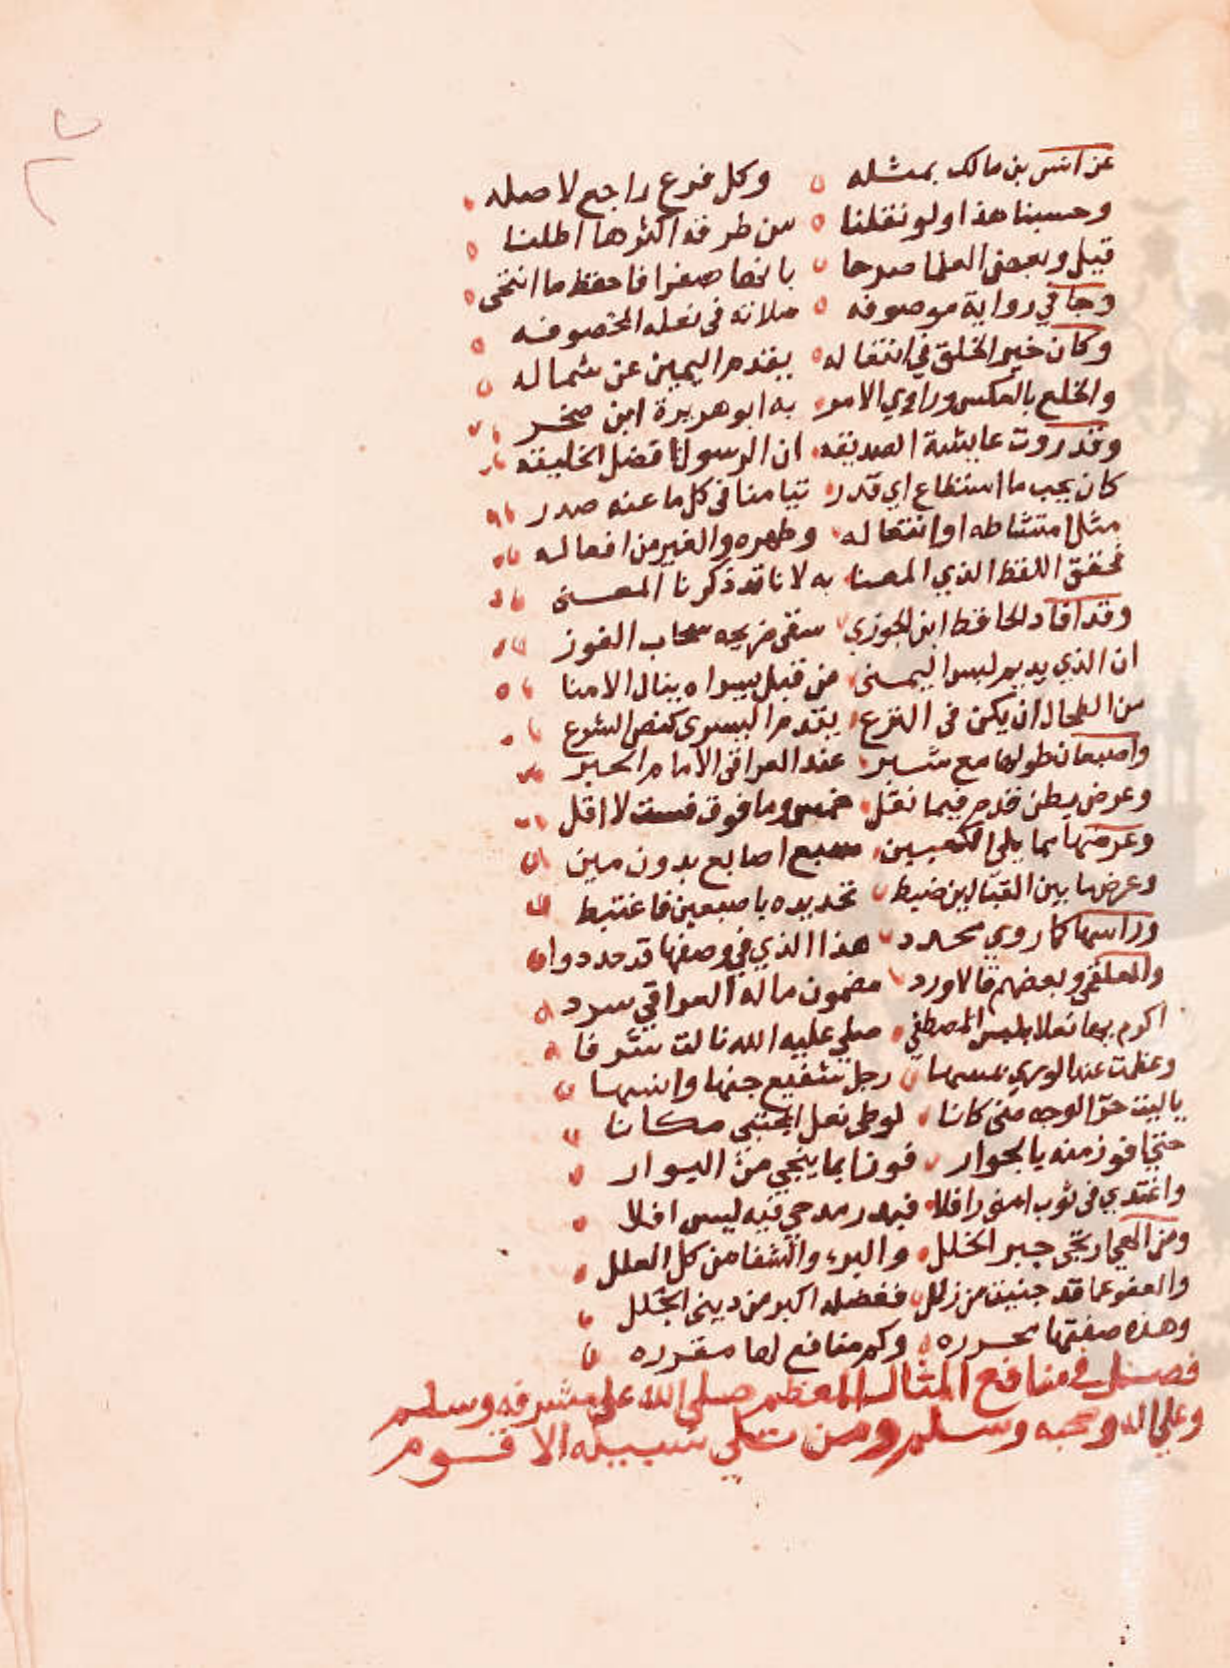 عن انس بن مالك بمثله وكل فرع راجع لاصله
وحسبنا هذا ولو نقلنا من طرفه اكثرها اطلنا
قيل وبعض العلما صرحا بانها صفرا فاحفظ ما انتحى
وجا في رواية موصوفه صلاته في نعله المخصوفه
وكان خير الخلق في انتعاله يقدم اليمين عن شماله
والخلع بالعكس وراوي الامر به ابو هريرة ابن صخر
وقد روت عايشة الصديقه ان الرسول افضل الخليقه
كان يحب ما استطاع اي قدر تيامنا في كل ما عنه صدر
مثل امتشاطه او انتعاله وطهره والغير من افعاله
فحقق اللفظ الذي المعنا به لانا قد ذكرنا المعنى
وقد افاد الحافظ ابن الجوزي سقى ضريحه سحاب الفوز
ان الذي يديم لبس اليمنى من قبل يسراه ينال الامنا
من الطحال ان يكن في النزع يقدم اليسرى كنص الشرع
واصبعان طولها مع شبر عند العراقي الامام الحبر
وعرض بطن قدم فيما نقل خمس وما فوق فست لا اقل
وعرضها مما يلي الكعبين سبع اصابع بدون مين
وعرض ما بين القبالين ضبط تحديده باصبعين فاغتبط
وراسها كما روي محدد هذا الذي في وصفها قد حددوا
والمعلقي وبعضهم قالا ورد مضمون ما له العراقي سرد
اكرم بها نعلا بلبس المصطفى صلى عليه الله نالت شرفا
وعظمت عند الورى بمسها رجل شفيع جنها وانسها
ياليت حر الوجه مني كانا لوطي نعل المجتبى مكانا
حتى افوز منه بالجوار فوزا بما ينجي من البوار
واغتدي في ثوب امني رافلا فبدر مدحي فيه ليس افلا
ومن العي ارتجى جبر الخلل والبرء والشفا من كل العلل
والعفو عما قد جنيت من زلل ففضله اكبر من ديني الجلل
وهذه صفتها محرره وكم منافع لها مقرره
فصل في منافع المثال المعظم صلى الله على مشرفه وسلم
وعلى اله وصحبه وسلم ومن على سبيله الاقوم